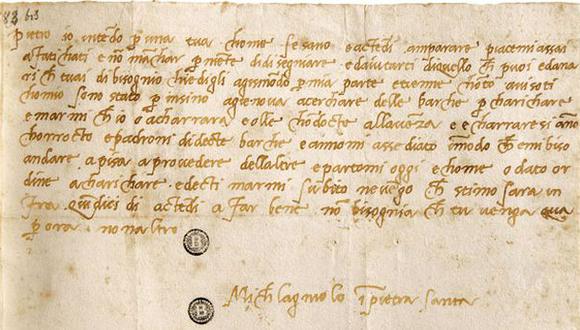 82 bis
pietro io intēdo p una tua chome se sano e actēdi amparare piacemi assai
afatichati e nō māchar p niēte di disegniare e daiutarti di quello ch puoi e dana
ri ch tu ai di bisognio chiedigli a gismōdo p mia parte e tienne chōto avisoti
chomio sono stato p insino a gienova a cerchare delle barche p charichare
e marmi ch io o a charrara e olle chodocte allavēza e e charraresi āno
chorrocto e padroni di decte barche e anomi assediato īmodo ch e mi biso
andare a pisa a provedere dellaltre e partomi oggi e chome o dato or
dine a charichare e decti marmi subito ne vēgo ch stimo sara in
fra quīdici di actēdi a far bene nō bisognia ch tu venga qua
p ora no naltro
Michelagniolo ī pietra santa